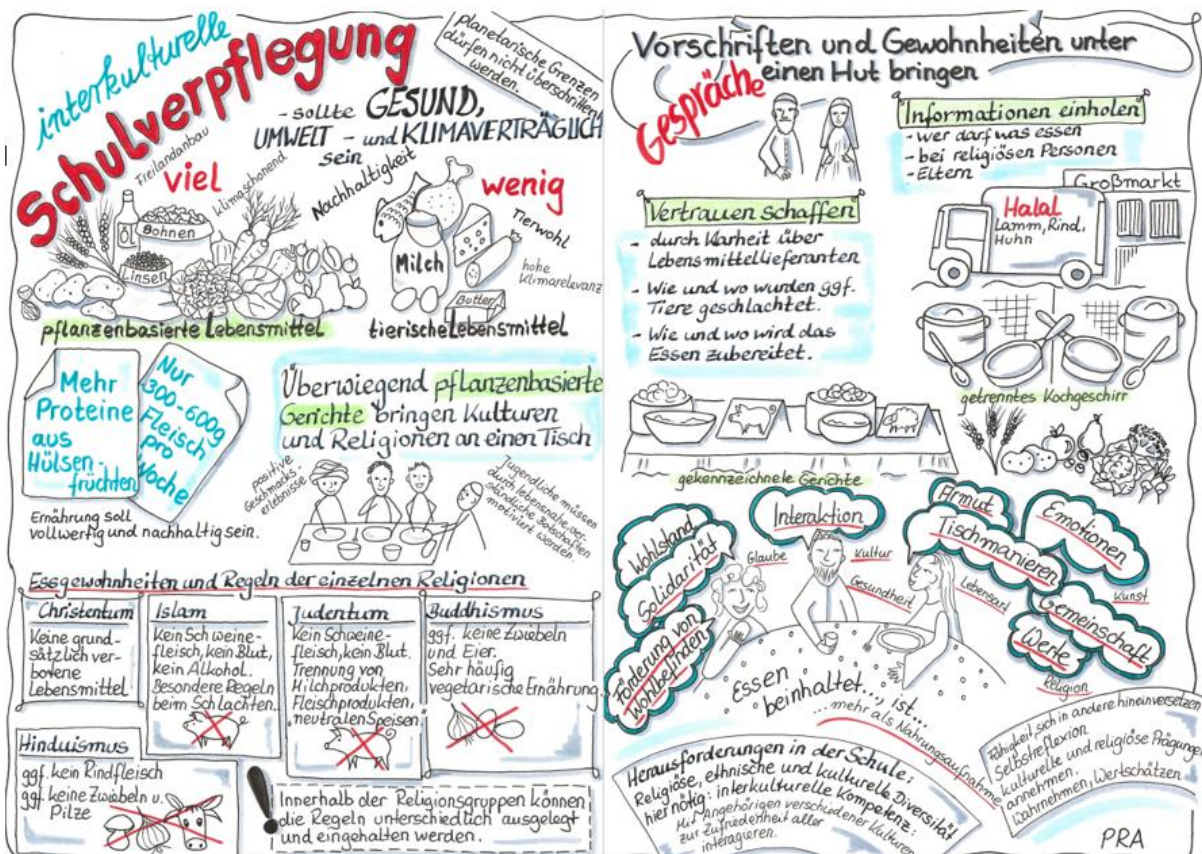 interkulturelle
Schulverpflegung
planetarische Grenzen
dürfen nicht überschritten
werden.
- sollte GESUND,
UMWELT - und KLIMAVERTRÄGLICH
sein
Freilandanbau
viel
Klimaschonend
Nachhaltigkeit
wenig
Tierwohl
hohe
Klimarelevanz
ÖL
Bohnen
Linsen
Milch
Butter
pflanzenbasierte Lebensmittel
tierische Lebensmittel
Mehr
Proteine
aus
Hülsen-
früchten
Nur
300-600g
Fleisch
pro
Woche
Ernährung soll
vollwertig und nachhaltig sein.
Überwiegend pflanzenbasierte
Gerichte bringen Kulturen
und Religionen an einen Tisch
positive
Geschmacks-
erlebnisse
Jugendliche müssen
durch lebensnahe, ver-
ständliche Botschaften
motiviert werden.
Essgewohnheiten und Regeln der einzelnen Religionen
Christentum
Keine grund-
sätzlich ver-
botene
Lebensmittel
Islam
Kein Schweine-
fleisch, kein Blut,
kein Alkohol.
Besondere Regeln
beim Schlachten.
Judentum
Kein Schweine-
fleisch, kein Blut.
Trennung von
Milchprodukten,
Fleischprodukten,
neutralen Speisen
Buddhismus
ggf. keine Zwiebeln
und Eier.
Sehr häufig
vegetarische Ernährung.
Hinduismus
ggf. kein Rindfleisch
ggf. keine Zwiebeln u.
Pilze
Innerhalb der Religionsgruppen können
die Regeln unterschiedlich ausgelegt
und eingehalten werden.
Vorschriften und Gewohnheiten unter
einen Hut bringen
Gespräche
Informationen einholen
- wer darf was essen
- bei religiösen Personen
- Eltern
Großmarkt
Halal
Lamm, Rind,
Huhn
Vertrauen schaffen
- durch Klarheit über
Lebensmittellieferanten
- Wie und wo wurden ggf.
Tiere geschlachtet.
- Wie und wo wird das
Essen zubereitet.
getrenntes Kochgeschirr
gekennzeichnete Gerichte
Wohlstand
Solidarität
Förderung von
Wohlbefinden
Interaktion
Glaube
Kultur
Gesundheit
Armut
Tischmanieren
Lebensart
Emotionen
Kunst
Gemeinschaft
Werte
Religion
Essen
beinhaltet..., ist...
...mehr als Nahrungsaufnahme
Herausforderungen in der Schule:
Religiöse, ethnische und kulturelle Diversität
hier nötig: interkulturelle Kompetenz:
Mit Angehörigen verschiedener Kulturen
zur Zufriedenheit aller
interagieren.
Fähigkeit, sich in andere hineinversetzen
Selbstreflexion
kulturelle und religiöse Prägungen
annehmen.
Wahrnehmen, Wertschätzen
PRA